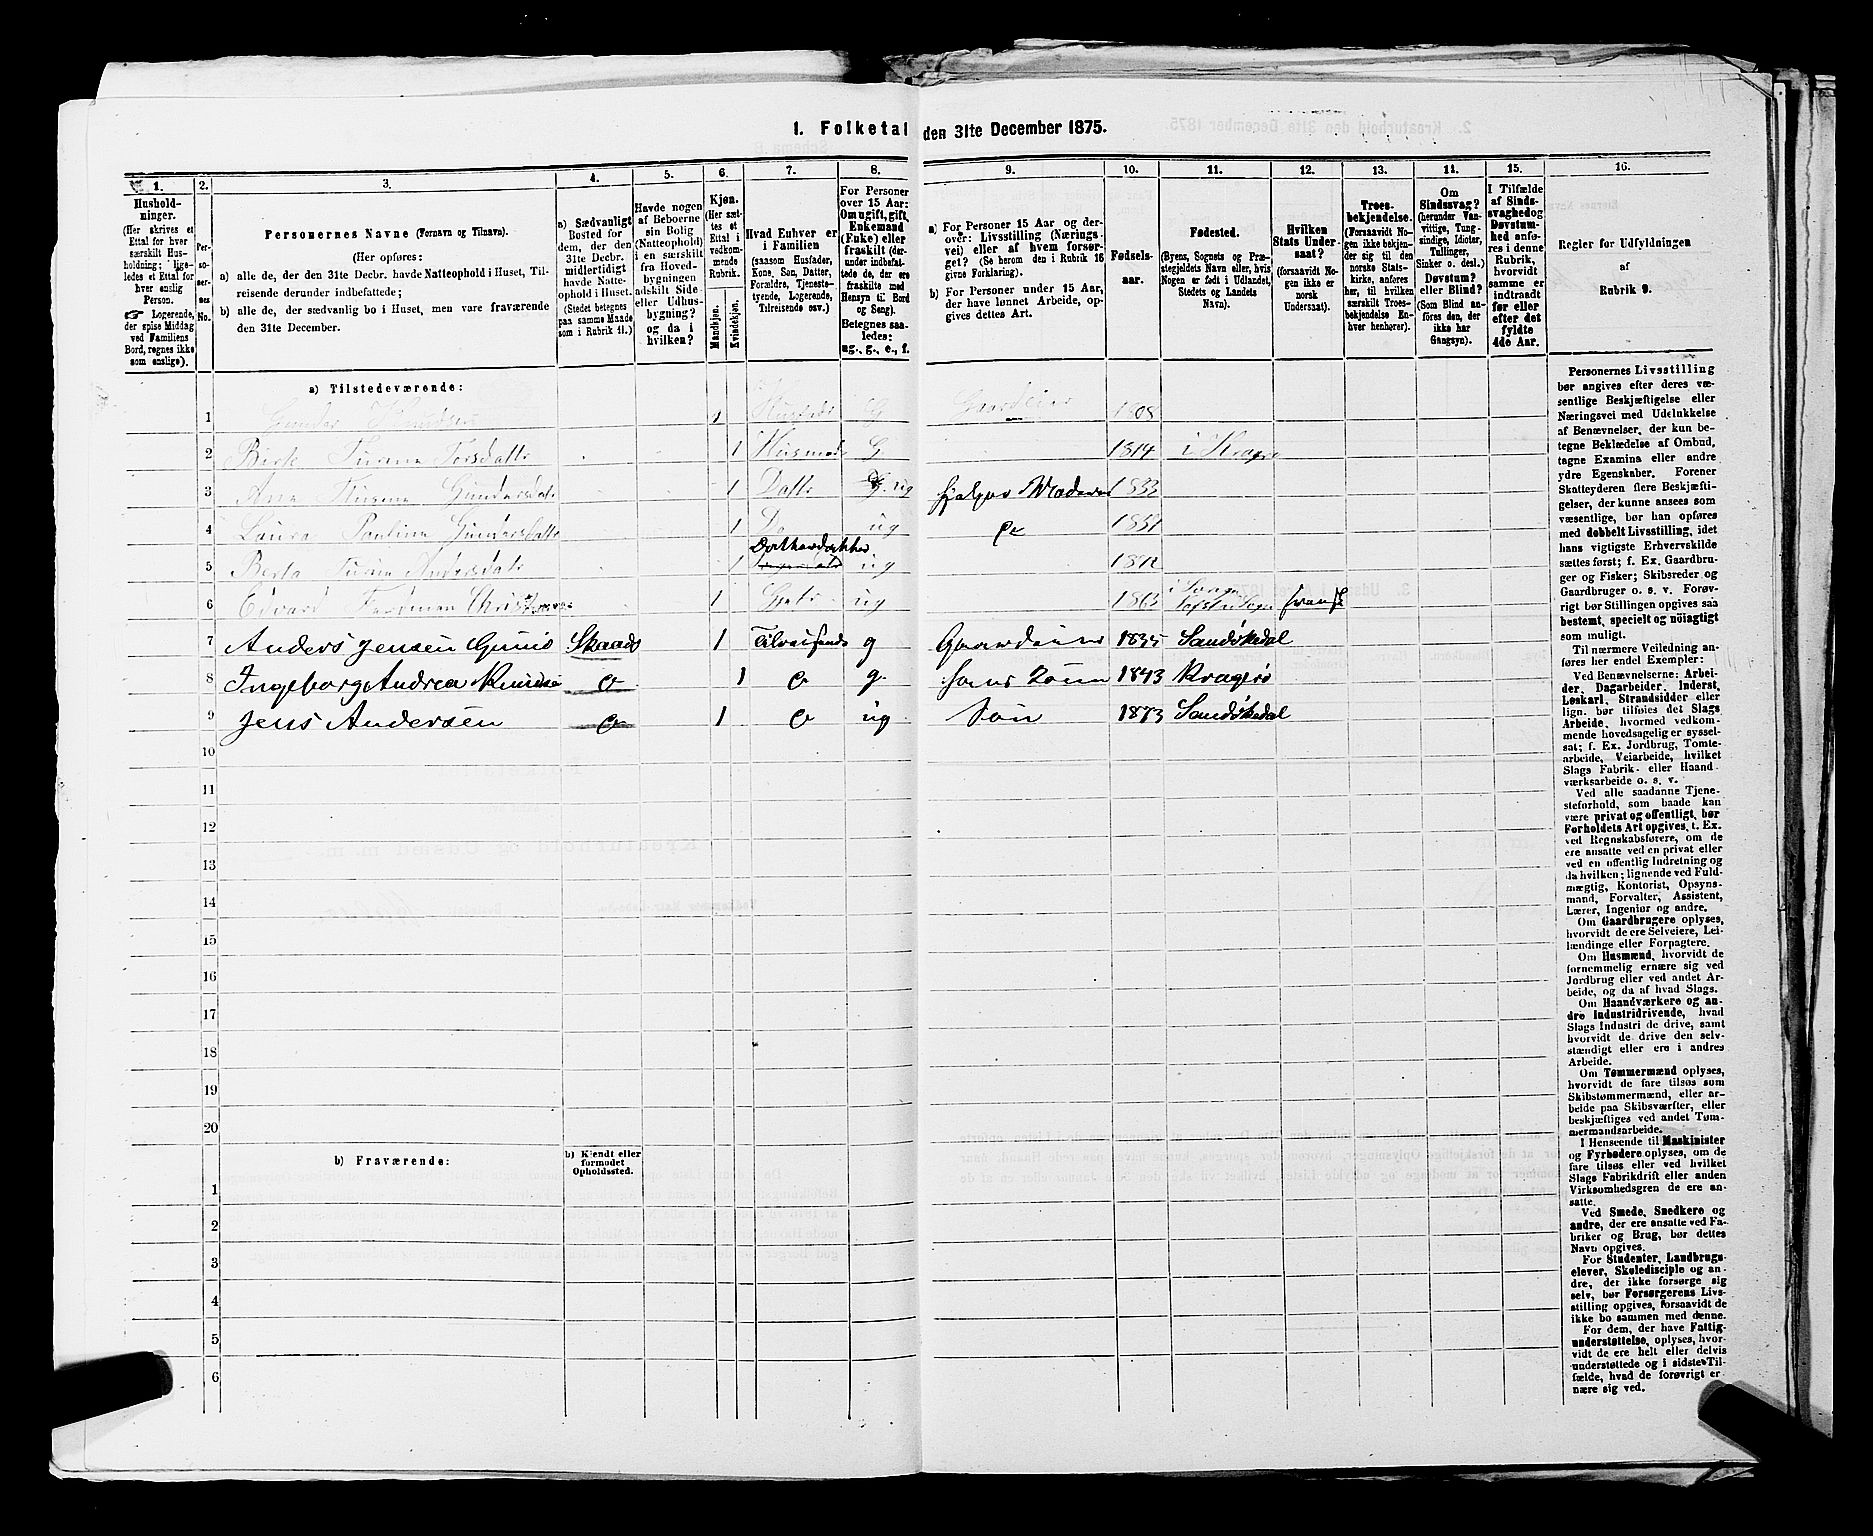 1. Folketal den 31te December 1875.
1.
Husholdninger.
(Her skrives et
Ettal for hver
særskilt Husholdning; ligeledes et Ettal for
hver enslig
Person.
☞ Logerende,
der spise Middag
ved Familiens
Bord, regnes ikke
som enslige).
2.
Personernes
No.
3.
Personernes Navne (Fornavn og Tilnavn).
(Her opføres:
a) alle de, der den 31te Decbr. havde Natteophold i Huset, Tilreisende derunder indbefattede;
b) alle de, der sædvanlig bo i Huset, men vare fraværende
den 31te December.
4.
a) Sædvanligt
Bosted for
dem, der den
31te Decbr.
midlertidigt
havde Natteophold i Huset.
(Stedet betegnes
paa samme Maade
som i Rubrik 11.)
5.
Havde nogen
af Beboerne
sin Bolig
(Natteophold)
i en særskilt
fra Hovedbygningen
adskilt Side
eller Udhusbygning?
og da i
hvilken?
6.
Kjøn.
(Her sættes et
Ettal i
vedkommende
Rubrik.
Mandkjøn.
Kvindekjøn.
7.
Hvad Enhver er
i Familien
(saasom Husfader,
Kone, Søn, Datter,
Forældre, Tjenestetyende, Logerende,
Tilreisende osv.)
8.
For Personer
over 15 Aar:
Om ugift, gift,
Enkemand
(Enke) eller
fraskilt (derunder indbefattede de, der ere
fraskilte med
Hensyn til Bord
og Seng).
Betegnes saaledes:
ug., g., e., f.
9.
a) For Personer 15 Aar og derover: Livsstilling (Næringsvei) eller af hvem forsørget? (Se herom den i Rubrik 16
givne Forklaring).
b) For Personer under 15 Aar,
der have lønnet Arbeide, opgives dettes Art.
10.
Fødselsaar.
11.
Fødested.
(Byens, Sognets og Præstegjeldets Navn eller, hvis
Nogen er født i Udlandet,
Stedets og Landets
Navn).
12.
Hvilken
Stats Undersaat?
(forsaavidt Nogen ikke er
norsk
Undersaat).
13.
Troesbekjendelse.
(Forsaavidt Nogen ikke bekjender sig til den
norske Statskirke, anføres
her, til hvilken
særskilt Troesbekjendelse Enhver henhører).
14.
Om
Sindssvag?
(herunder Vanvittige, Tungsindige, Idioter,
Tullinger,
Sinker o. desl.)
Døvstum?
eller Blind?
(Som Blind anføres den, der
ikke har
Gangsyn).
15.
I Tilfælde
af Sindssvaghed og
Døvstumhed anføres i denne
Rubrik,
hvorvidt
samme er
indtraadt
før eller
efter det
fyldte
4de Aar.
16.
Regler for Udfyldningen
af
Rubrik 9.
a) Tilstedeværende:
1 Gunder Knudsen 1 G Gaardeier 1808
2 Turine 1 G. 1814 i Kragerø
3 Gundersdatr 1 Datr ug hjelper Moderen 1832
4 Laura Pauline Gundersdatr 1 Do ug do
5 Berta Turine Andersdatr 1 Datterdatter ug
6 Edvard 1 ug 1865
7 Anders Jensen 1 Tilreisende g Gaardeier 1835 Sandøkedal
8 Ingeborg Andrea 1 do g. hans Kone 1843 Kragerø
9 Jens Andersen do 1 do ug Søn 1873 Sandøkedal
10
11
12
13
14
15
16
17
18
19
20
b) Fraværende:
b) Kjendt eller
formodet
Opholdssted.
1
2
3
4
5
6
Personernes Livsstilling
bør angives efter deres væsentlige Beskjæftigelse eller
Næringsvei med Udelukkelse
af Benævnelser, der kun betegne Beklædelse af Ombud,
tagne Examina eller andre
ydre Egenskaber. Forener
Skatteyderen flere Beskjæftigelser, der kunne ansees som
væsentlige, bør han opføres
med dobbelt Livsstilling, idet
hans vigtigste Erhvervskilde
sættes først; f. Ex. Gaardbruger og Fisker; Skibsreder og
Gaardbruger o. s. v. Forøvrigt bør Stillingen opgives saa
bestemt, specielt og nøiagtigt
som muligt.
Til nærmere Veiledning anføres her endel Exempler:
Ved Benævnelserne: Arbeider, Dagarbeider, Inderst,
Løskarl, Strandsidder eller
lign. bør tilføies det Slags
Arbeide, hvormed vedkommende hovedsagelig er sysselsat; f. Ex. Jordbrug, Tomtearbeide, Veiarbeide, hvilket
Slags Fabrik- eller Haandværksarbeide o. s. v.
Ved alle saadanne Tjenesteforhold, som baade kan
være privat og offentligt, bør
Forholdets Art opgives, t. Ex.
ved Regnskabsførere, om de
ere ansatte ved en privat eller
ved en offentlig Indretning og
da hvilken; lignende ved Fuldmægtig, Kontorist, Opsynsmand, Forvalter, Assistent,
Lærer, Ingeniør og andre.
Om Gaardbrugere oplyses,
hvorvidt de ere Selveiere, Leilændinge eller Forpagtere.
Om Husmænd, hvorvidt de
fornemmelig ernære sig ved
Jordbrug eller ved andet Arbeide, og da af hvad Slags.
Om Haandværkere og andre Industridrivende, hvad
Slags Industri de drive, samt
hvorvidt de drive den selvstændigt eller ere i andres
Arbeide.
Om Tømmermænd oplyses,
hvorvidt de fare tilsøs som
Skibstømmermænd, eller arbeide paa Skibsværfter, eller
beskjæftiges ved andet Tømmermandsarbeide.
I Henseende til Maskinister
og Fyrbødere oplyses, om de
fare tilsøs eller ved hvilket
Slags Fabrikdrift eller anden
Virksomhedsgren de ere ansatte.
Ved Smede, Snedkere og
andre, der ere ansatte ved Fabriker og Brug, bør dettes
Navn opgives.
For Studenter, Landbrugselever, Skoledisciple og andre, der ikke forsørge sig
selv, bør Forsørgerens Livsstilling opgives, forsaavidt de
ikke bo sammen med denne.
For dem, der have Fattigunderstøttelse, oplyses, hvorvidt de ere helt eller delvis
understøttede og i sidste Tilfælde, hvad de forøvrigt ernære sig ved.